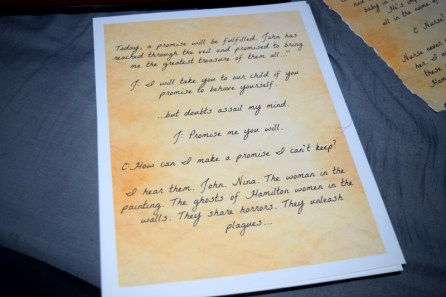 Today, a promise will be fulfilled. John has
reached through the veil and promised to bring
me the greatest treasure of them all..."
J: I will take you to our child if you
promise to behave yourself.
...but doubts assail my mind.
J: Promise me you will.
C: How can I make a promise I can't keep?
I hear them. John. Nina. The woman in the
painting. The ghosts of Hamilton women in the
walls. They share horrors. They unleash
plagues...
baby in
all in the name
C: Nurse
Nurse never
her. I
these
Ham